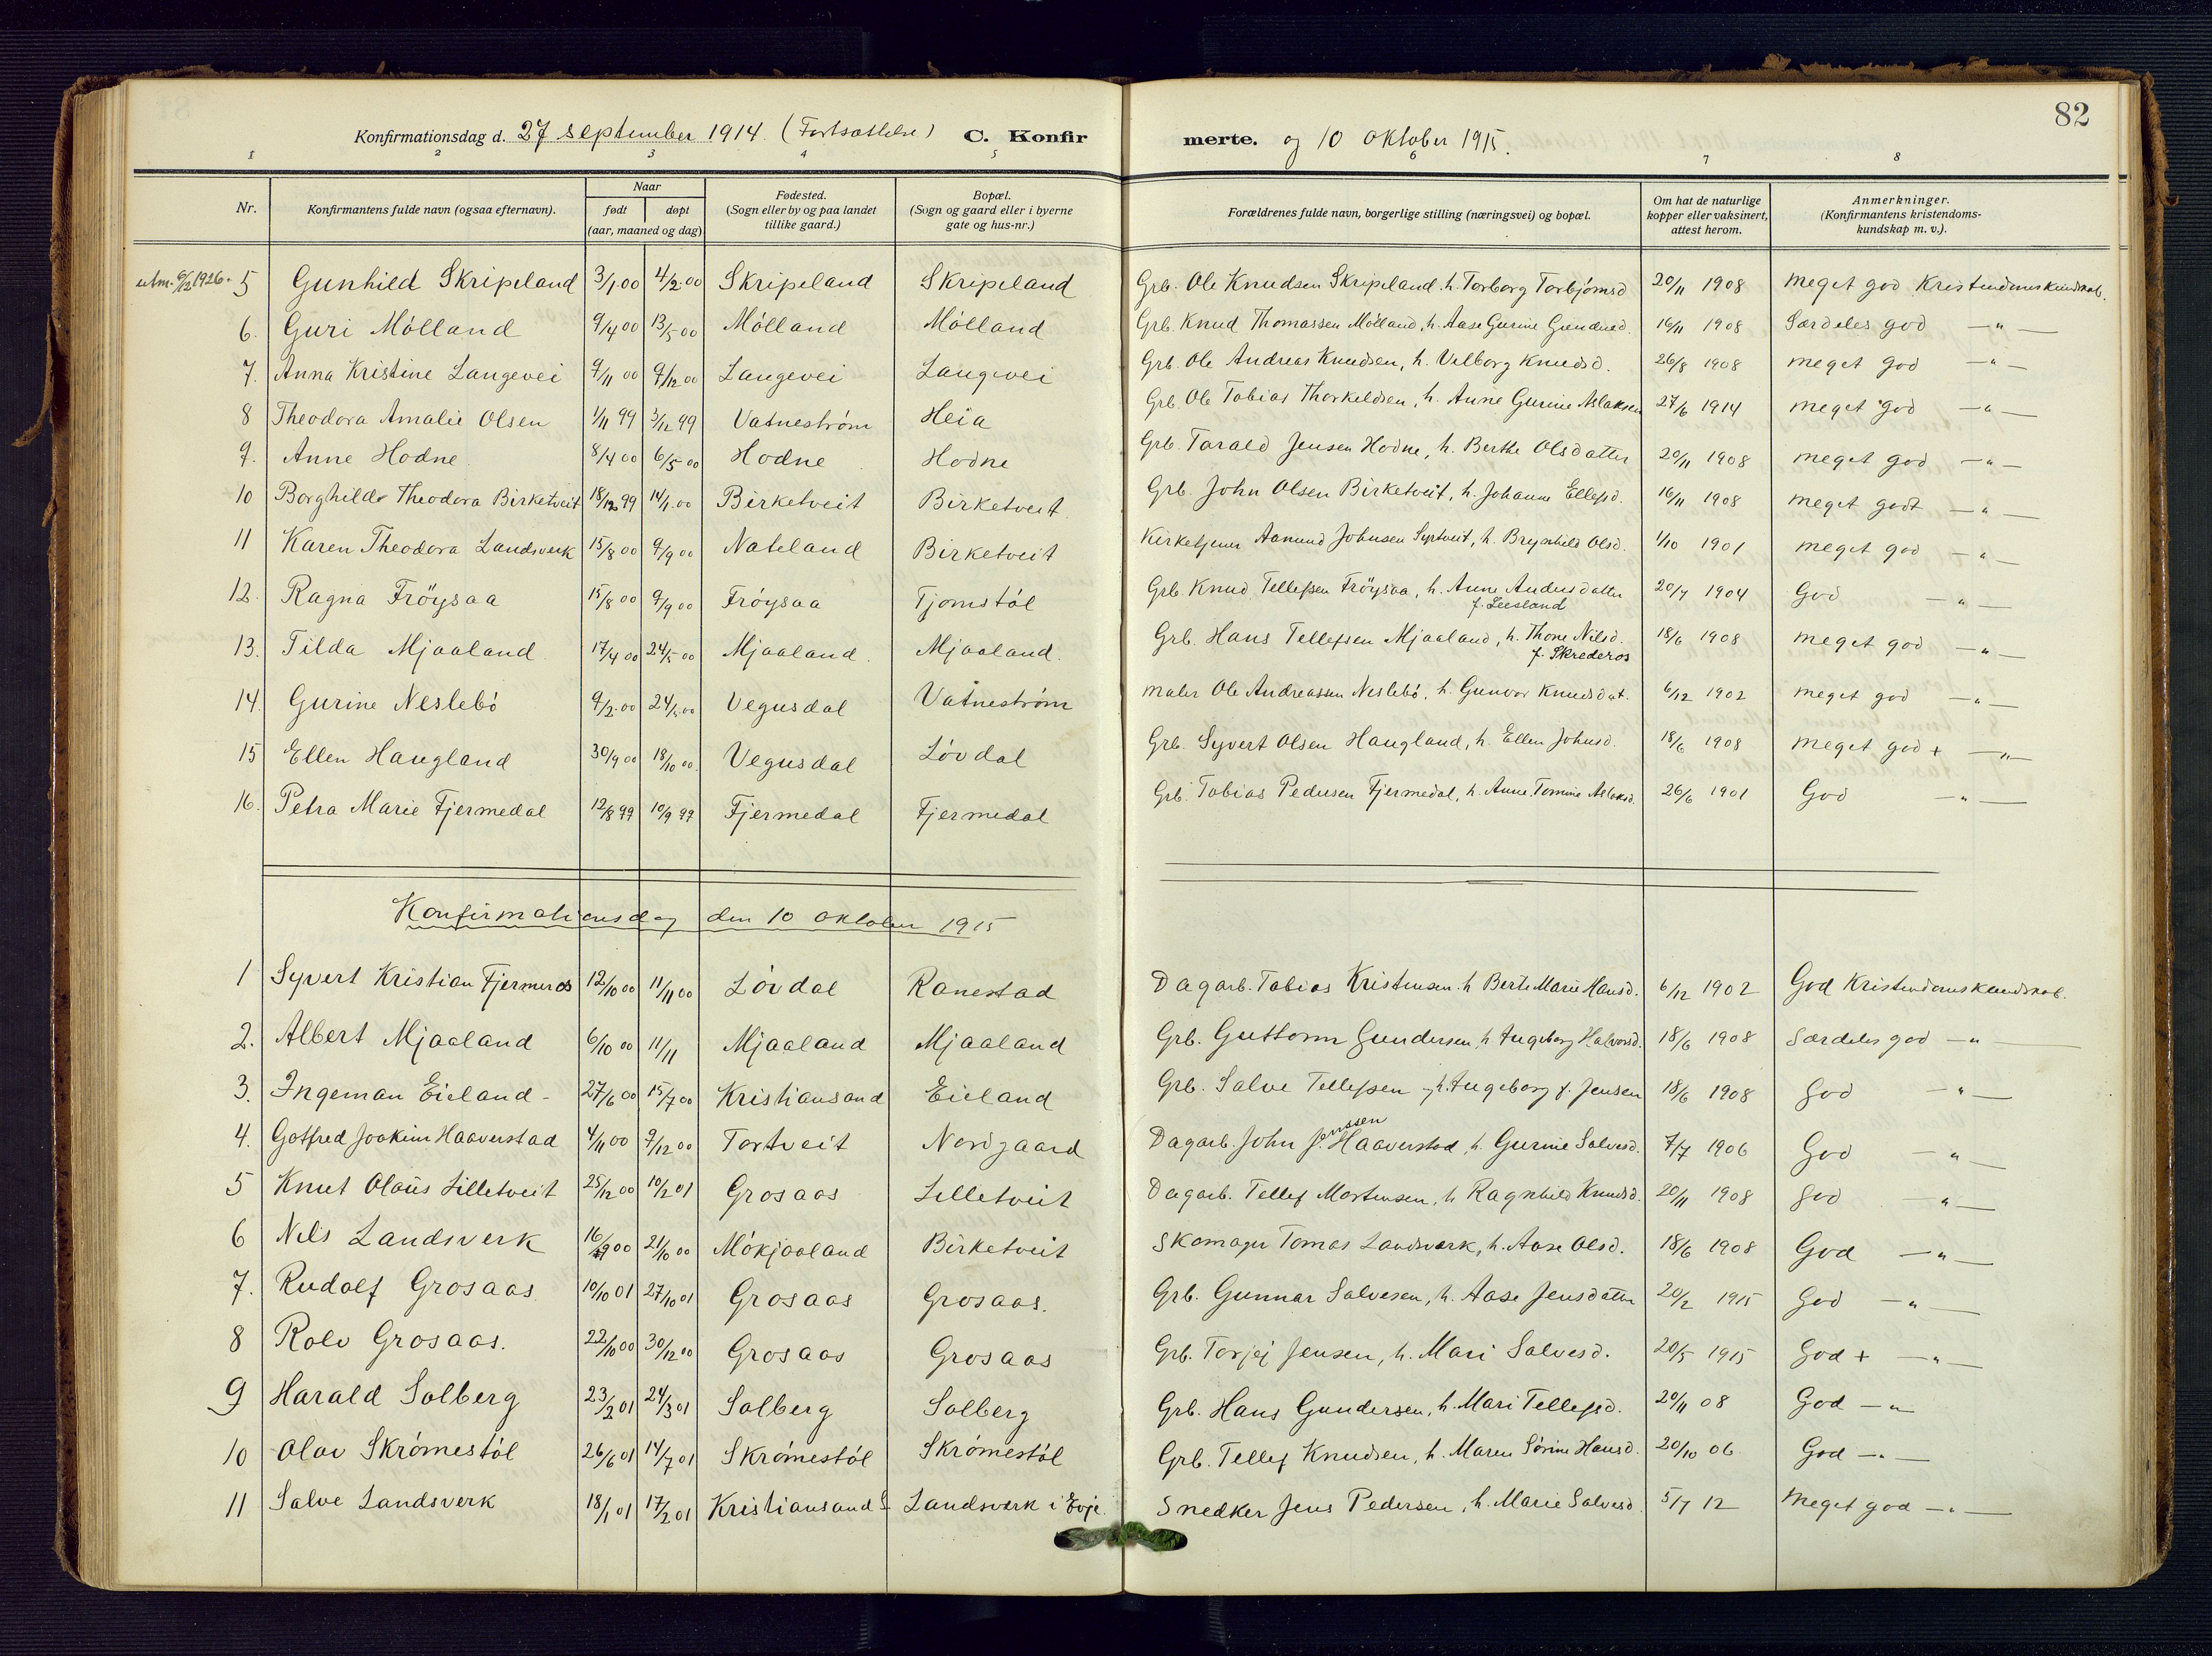 82
Konfirmationsdag d. 27 september 1914. (Fortsættelse) C. Konfir merte. og 10 oktober 1915.
1 2 3 4 5 6 7 8
Nr. Konfirmantens fulde navn (ogsaa efternavn). Naar født døpt (aar, maaned og dag) Fødested. (Sogn eller by og paa landet tillike gaard.) Bopæl. (Sogn og gaard eller i byerne gate og hus-nr.) Forældrenes fulde navn, borgerlige stilling (næringsvei) og bopæl. Om hat de naturlige kopper eller vaksinert, attest herom. Anmerkninger. (Konfirmantens kristendoms-kundskap m. v.).
utm. 6/12 1926. 5 Gunhild Skripeland 3/1.00 4/2.00 Skripeland Skripeland Grb. Ole Knudsen Skripeland. h. Torborg Torbjörnsd 20/11 1908 meget god Kristendomskundskab.
6. Guri Mölland 9/4 00 13/5 00 Mölland Mölland Grb. Knud Thomassen Mölland, h. Aase Gurine 16/11 1908 Særdeles god —"—
7. Anna Kristine Langevei 9/11 00 9/12 00 Langevei Langevei Grb. Ole Andreas Knudsen, h. Valborg Knudsd. 26/8 1908 meget god —"—
8 Theodora Amalie Olsen 1/11 99 3/12 99 Vatneström Heia Grb. Ole Tobias Thorkeldsen, h. Anne Gurine Aslaksen 27/6 1914 meget god —"—
9. Anne Hodne 8/4 00 6/5 00 Hodne Hodne Grb. Tarald Jensen Hodne, h. Berthe Olsdatter 20/11 1908 meget god —"—
10 Borghild Theodora Birketveit 18/12 99 14/1.00 Birketveit Birketveit Grb. John Olsen Birketveit, h. Johanne Ellefsd. 16/11 1908 meget godt —"—
11 Karen Theodora Landsverk 15/8 00 9/9 00 Nateland Birketveit Kirketjener Aanund Johnsen Syrtveit, h. Brynhild Olsd. 1/10 1901 meget god —"—
12. Ragna Fröysaa 15/8 00 9/9 00 Fröysaa Tjomstöl Grb. Knud Tellefsen Fröysaa, h. Anne Andersdatter f. Leesland 20/7 1904 God —"—
13. Tilda Mjaaland 17/4 00 24/5 00 Mjaaland. Mjaaland. Grb. Hans Tellefsen Mjaaland, h. Thone Nilsd. f. Skrederos 18/6 1908 meget god —"—
14. Gurine Neslebö 9/2.00 24/5.00 Vegusdal Vatneström maler Ole Andreassen Neslebö. h. Gunvor Knudsdat. 6/12 1902 meget god —"—
15 Ellen Haugland 30/9 00 18/10 00. Vegusdal Lövdal Grb. Syvert Olsen Haugland, h. Ellen Johnsd. 18/6 1908 meget god + —"—
16. Petra Marie Fjermedal 12/8 99 10/9 99 Fjermedal Fjermedal Grb. Tobias Pedersen Fjermedal, h. Anne Tomine Aslaksd. 26/6 1901 God —"—
Konfirmationsdag den 10 oktober 1915
1 Syvert Kristian Fjermeros 12/10 00 11/11 00 Lövdal Ranestad Dagarb. Tobias Kristensen. h Berte Marie Hansd. 6/12 1902 God Kristendomskundskab.
2. Albert Mjaaland 6/10 00 11/11 Mjaaland Mjaaland Grb. Guttorm Gundersen, h Ingeborg Halvorsd. 18/6 1908 Særdeles god —"
3. Ingeman Eieland - 27/6 00 15/7 00 Kristiansand Eieland Grb. Salve Tellefsen h. Ingeborg f. Jensen 18/6 1908 god —"—
4. Gotfred Joakim Haaverstad 4/11 00 9/12 00 Tortveit Nordgaard Dagarb. John Jenssen Haaverstad, h. Gurine Salvesd. 7/7 1906 God —"—
5 Knut Olaüs Lilletveit 25/12 00 10/2 01 Grosaas Lilletveit Dagarb. Tellef Mortensen, h Ragnhild Knudsd. 20/11 1908 god "—
6 Nils Landsverk 16/9 00 21/10 00 Mökjaaland Birketveit Skomager Tomas Landsverk, h. Aase Olsd. 18/6 1908 God —"—
7. Rudolf Grosaas 10/10 01 27/10 01 Grosaas Grosaas. Grb. Gunnar Salvesen, h. Aase Jensdatter 20/2 1915 God —"—
8 Rolv Grosaas. 22/10 00 30/12 00 Grosaas Grosaas Grb. Torjej Jensen, h. Mari Salvesd. 20/5 1915 God + —"—
9 Harald Solberg 23/2 01 24/3 01 Solberg Solberg Grb. Hans Gundersen, h. Mari Tellefsd. 20/11 08 God —"
10 Olav Skrömestöl 26/6 01 14/7 01 Skrömestöl Skrömestöl Grb. Tellef Knudsen, h. Maren Sörine Hansd. 20/10 06 God —"—
11 Salve Landsverk 18/1 01 17/2 01 Kristiansand S Landsverk i Evje. Snedker Jens Pedersen, h. Marie Salvesd. 5/7 12 Meget god —"—